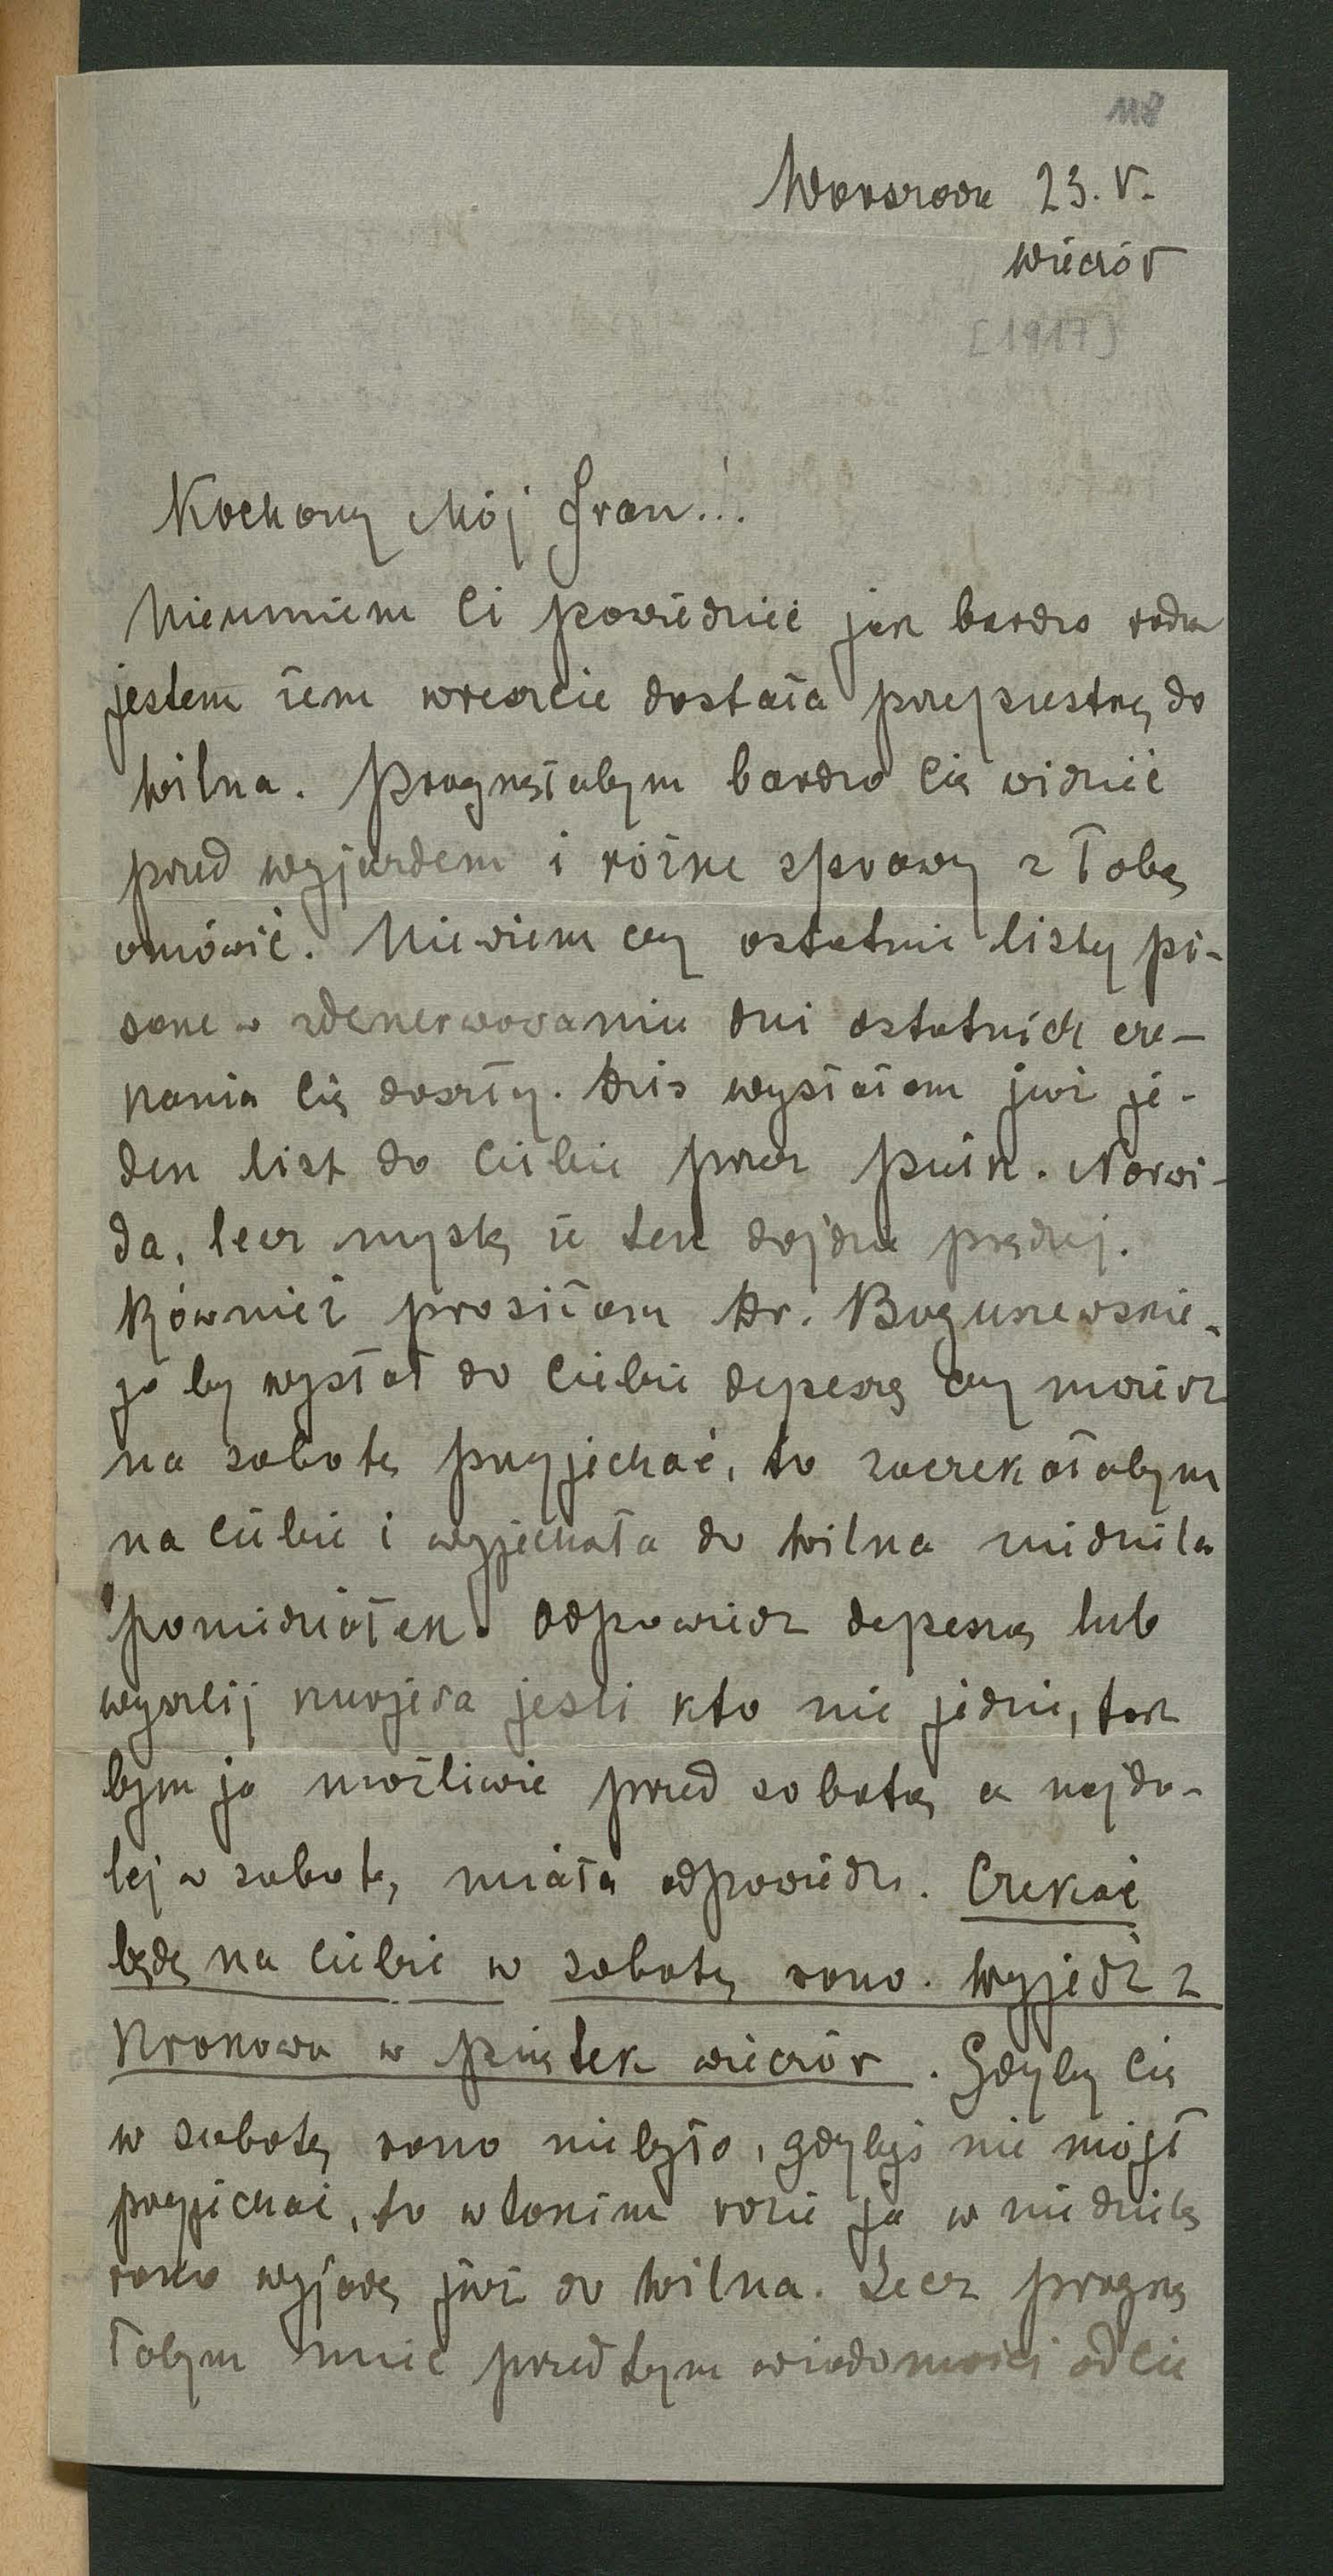 118
Warszawa 23. V.
wieczór
[1917]
Kochany Mój Fran...!
Nieumiem Ci powiedzieć jak bardzo rada
jestem żem wreszcie dostała przepustkę do
Wilna. Pragnęłabym bardzo Cię widzieć
przed wyjazdem i różne sprawy z Tobą
omówić. Niewiem czy ostatnie listy pi-
sane w zdenerwowaniu dni ostatnich cze-
kania Cię doszły. Dziś wysłałam już je-
den list do Ciebie przez pułk. Norwi-
da, lecz myślę że ten dojdzie prędzej.
Również prosiłam Dr. Boguszewskie-
go by wysłał do Ciebie depeszę czy możesz
na sobotę przyjechać, to zaczekałabym
na Ciebie i wyjechała do Wilna niedziela
poniedziałek. Odpowiedz depeszą lub
wyszlij kurjera jeśli kto nie jedzie, tak
bym ja możliwie przed sobotą a najda-
lej w sobotę, miała odpowiedź. Czekać
będę na Ciebie w sobotę rano. Wyjedź z
Krakowa w piątek wieczór. Gdyby Cię
w sobotę rano niebyło, gdybyś nie mógł
przyjechać, to w takim razie ja w niedzielę
rano wyjadę już do Wilna. Lecz pragnę
łabym mieć przedtym wiadomości od Cie